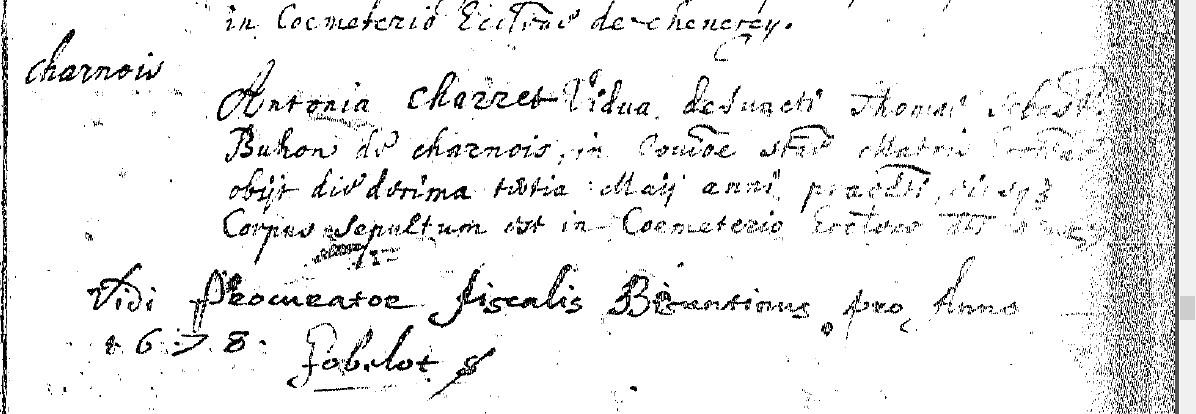 in Coemeterio Ecclsiae de chenecey.
charnois
Antonia Charret Vidua defuncti Thomae
Buhon de charnois, in Comõe stae Matris
obijt die decima tertia Maij anni praedti, eiusq3
Corpus sepultum est in Coemeterio
Vidi Procurator fiscalis Bisuntinus pro Anno
1678. Jobelot